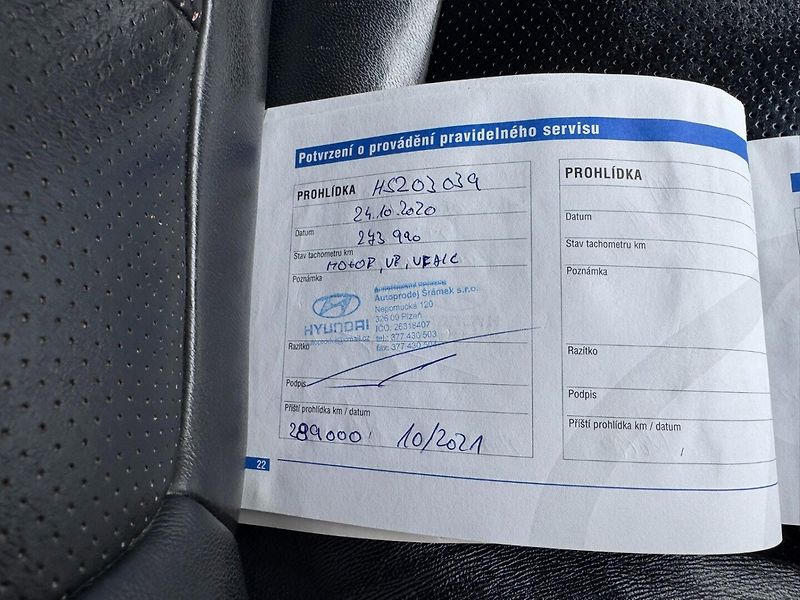 Potvrzení o provádění pravidelného servisu
PROHLÍDKA HS203039
24.10.2020
Datum
273 990
Stav tachometru km
MOTOR, VP,
Poznámka
Autoprodej Šrámek s.r.o.
Nepomucká 120
326 00 Plzeň
IČO: 26318407
HYUNDAI
tel.: 377 430 503
fax: 377 430
Razítko
Podpis
Příští prohlídka km / datum
289000 10/2021
22
PROHLÍDKA
Datum
Stav tachometru km
Poznámka
Razítko
Podpis
Příští prohlídka km / datum
/